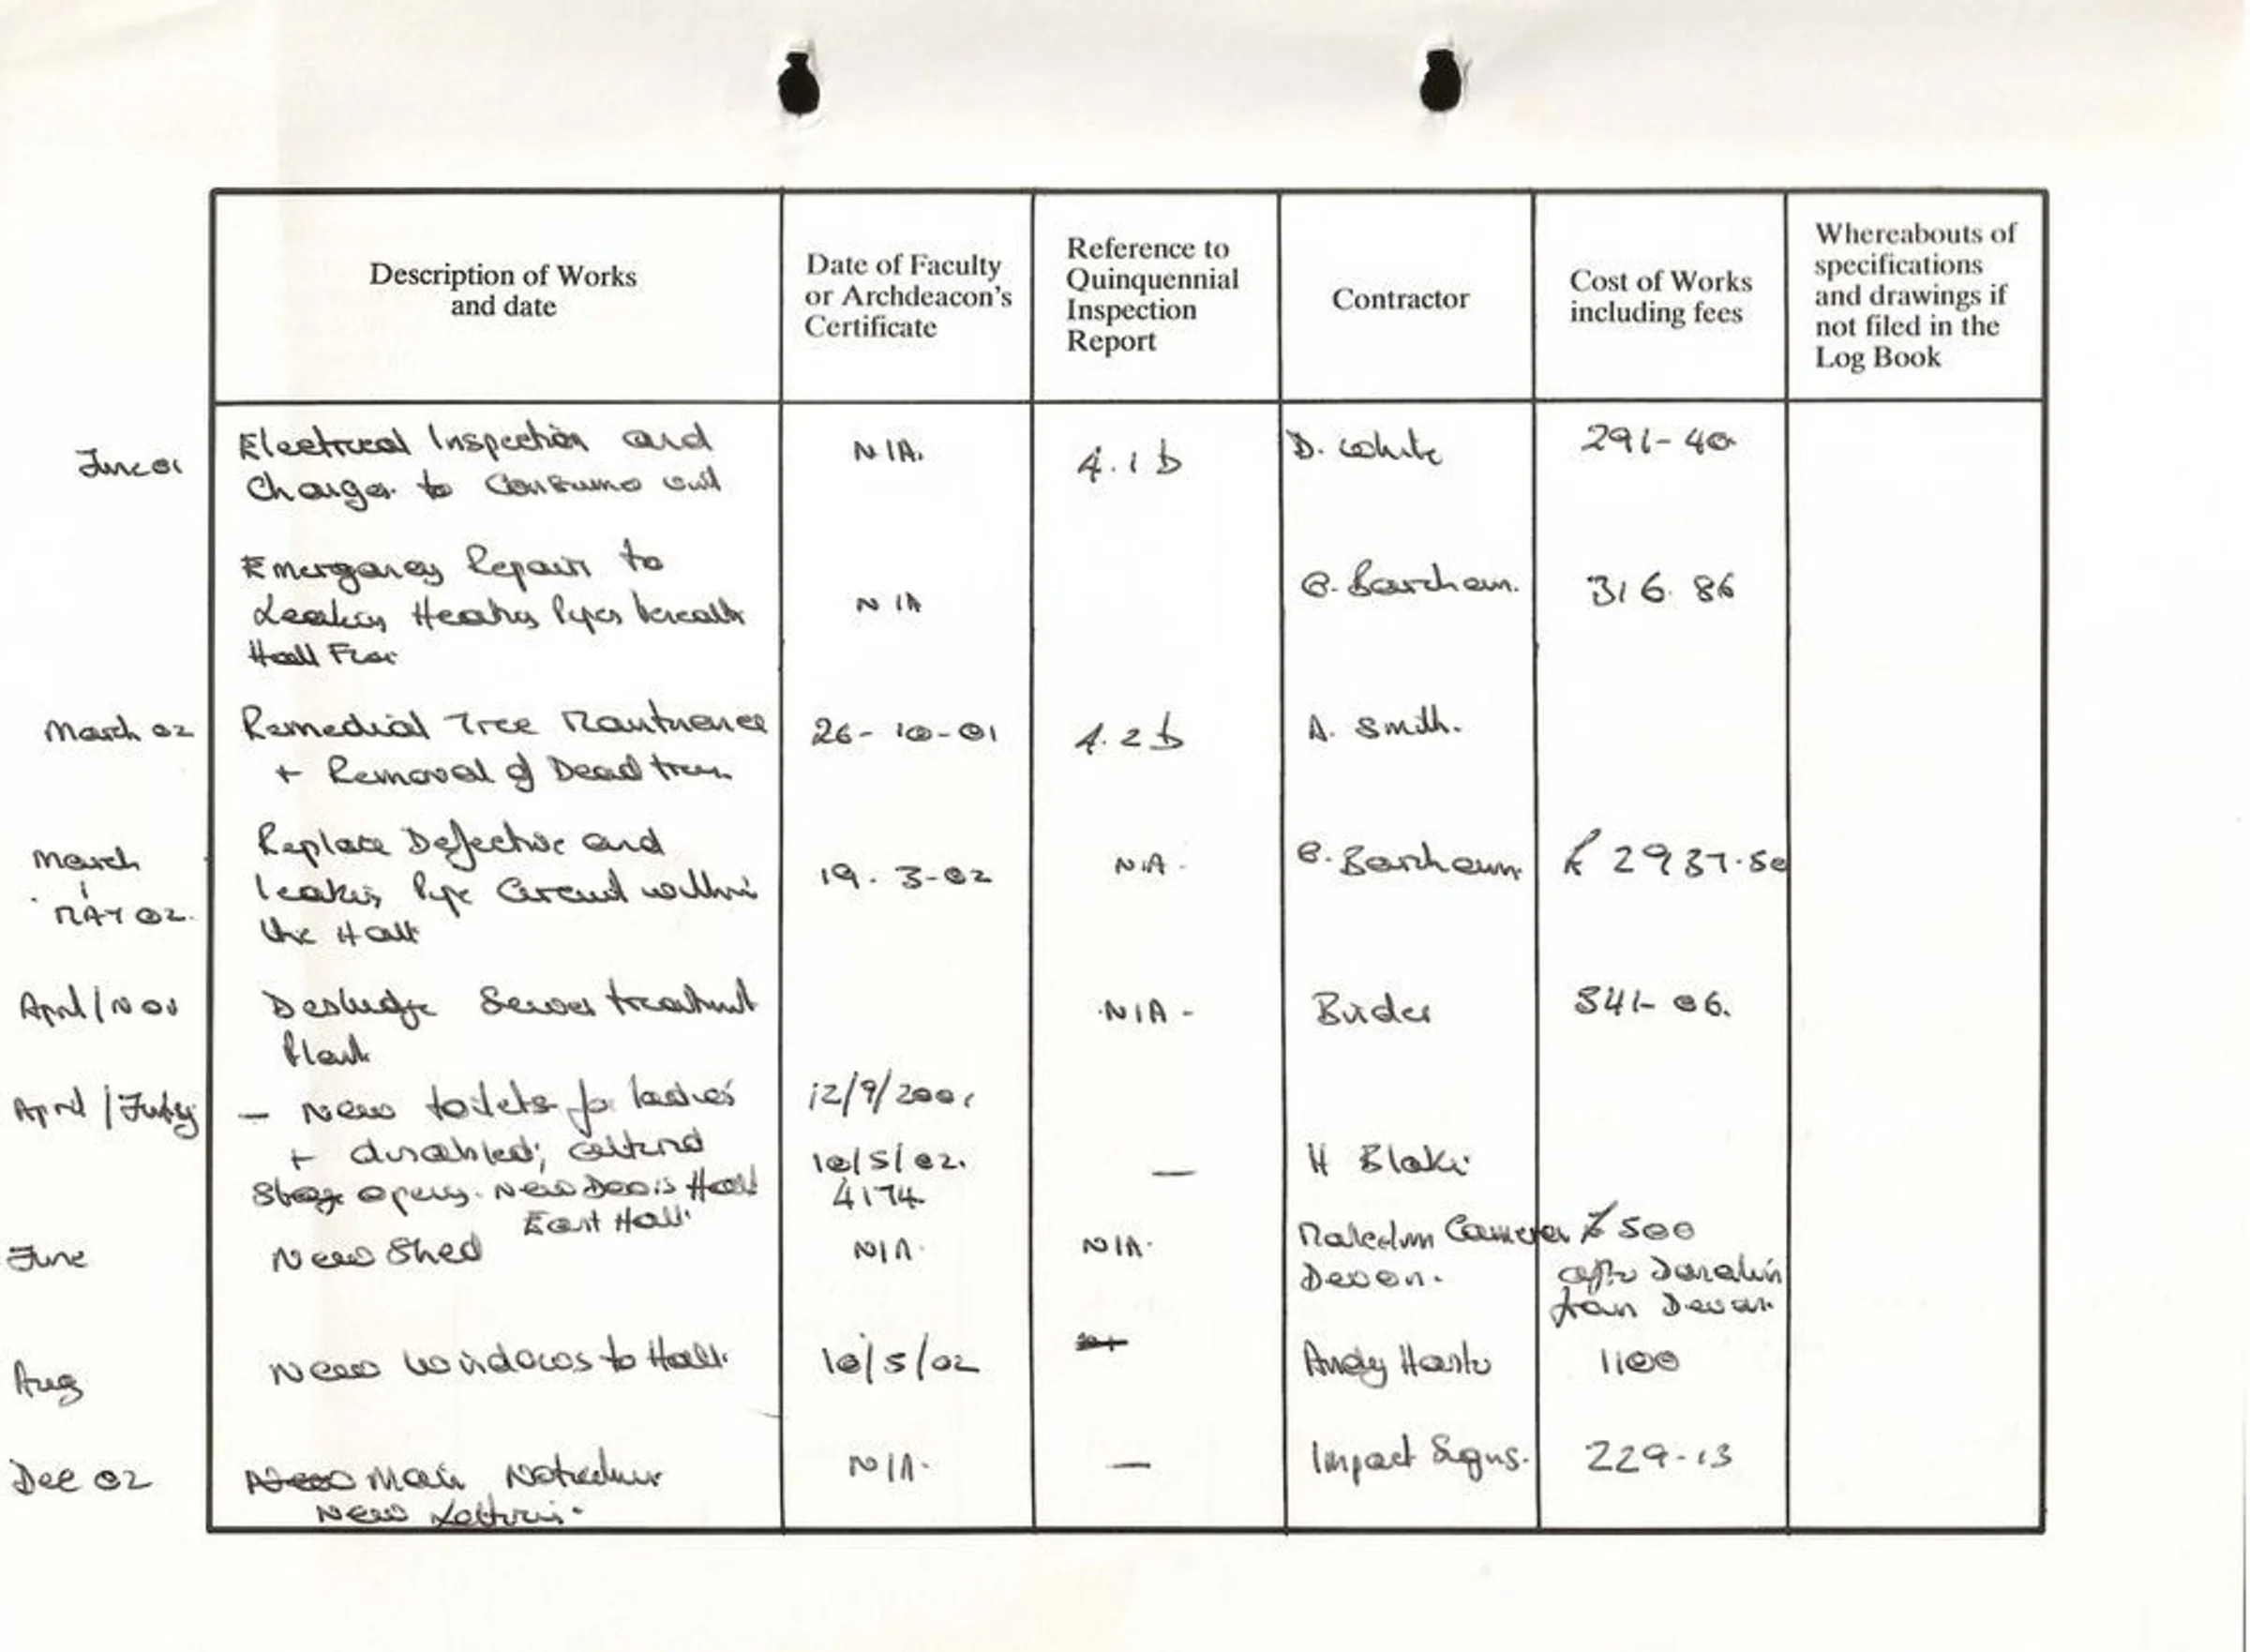 Description of Works
and date
Date of Faculty
or Archdeacon's
Certificate
Reference to
Quinquennial
Inspection
Report
Contractor
Cost of Works
including fees
Whereabouts of
specifications
and drawings if
not filed in the
Log Book
June 01
Electrical Inspection and
Changes to Consumer unit
N/A.
4.1 b
D. White
291-40
Emergency Repairs to
Leaking Heating Pipes beneath
Hall Floor
N/A
Barcham.
316.86
March 02
Remedial Tree Maintenance
+ Removal of Dead trees
26-10-01
4.2 b
A. Smith.
March
MAY 02.
Replace Defective and
leaking Pipe Circuit within
the Hall
19.3-02
N/A.
Barcham
£ 2937.50
April/Nov
Desludge Sewer treatment
Plant
N/A -
341-06.
April/July
- New toilets for ladies
+ disabled; extend
Stage opening. New Doors Hall
East Hall.
12/9/2001
10/5/02.
4174
—
H
June
New Shed
N/A.
N/A.
Malcolm Cameron
Devon.
£ 500
after Donation
from Devon.
Aug
New Windows to Hall.
10/5/02
Andy
1100
Dec 02
New Main Noticeboard
New Lettering.
N/A.
—
Impact Signs.
229-13